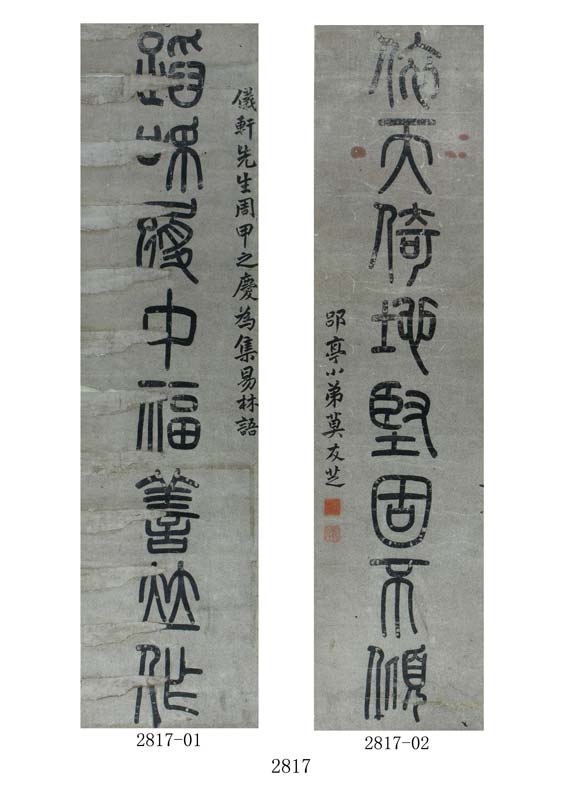 蹈和履中福善竝作
儀軒先生周甲之慶為集易林語
依天倚地堅固不傾
郘亭小弟莫友芝
2817-01
2817-02
2817